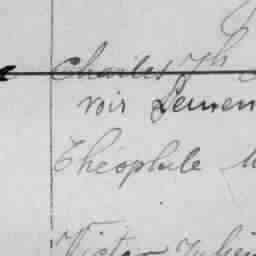 Charles Jh
voir Lemen
Théophile
Victor Julien